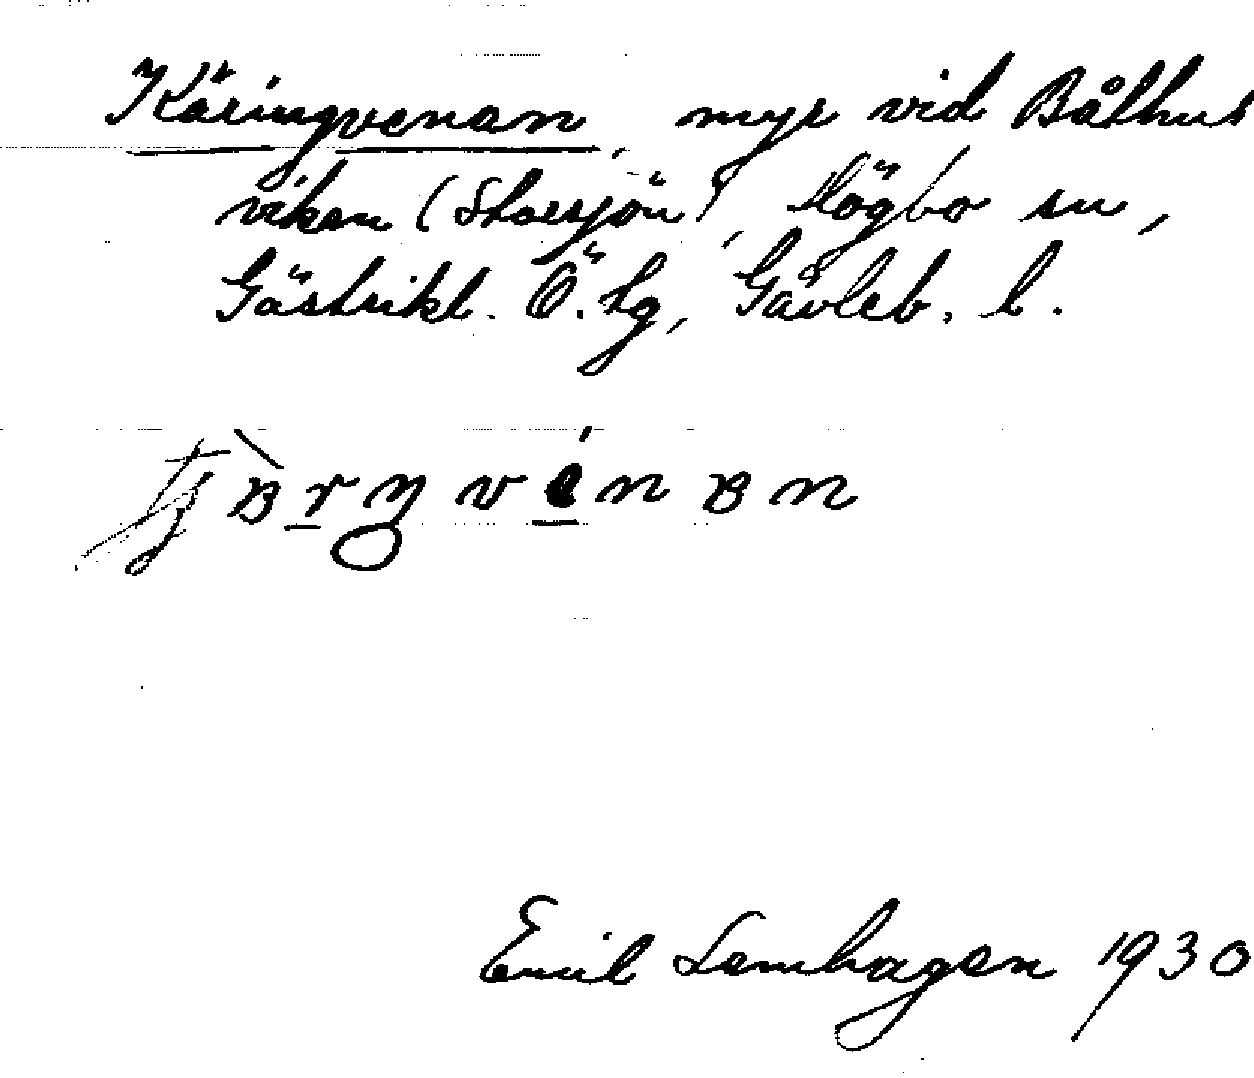 Käringvenan, myr vid Båthus
viken (Storsjön), Högbo sn,
Gästrikl. Ö. tg, Gävleb. l.
Emil Lamhagen 1930